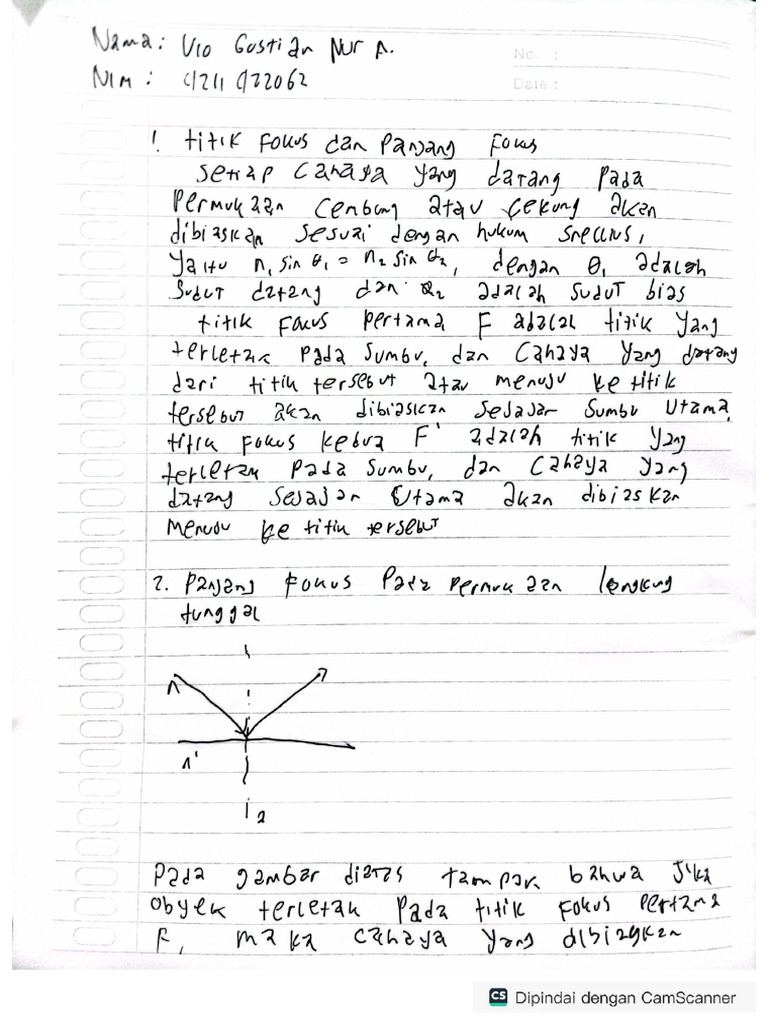 Nama: Vio Gustian Nur A.
No. :
NIM :
Date :
1. titik Fokus dan Panjang Fokus
Setiap Cahaya yang datang Pada
Permukaan Cembung atau Cekung akan
dibiaskan Sesuai dengan hukum Snellius,
Yaitu n₁ sin θ₁ = n₂ sin θ₂, dengan θ₁ adalah
Sudut datang dan θ₂ adalah Sudut bias
titik Fokus Pertama F adalah titik Yang
terletak Pada Sumbu, dan Cahaya Yang datang
dari titik tersebut atau menuju ke titik
tersebut akan dibiaskan Sejajar Sumbu Utama,
titik Fokus kedua F' adalah titik Yang
terletak Pada Sumbu, dan Cahaya Yang
datang Sejajar Utama akan dibiaskan
Menuju ke titik tersebut
2. Panjang Fokus Pada Permukaan lengkung
tunggal
Pada gambar diatas tampak bahwa Jika
Obyek terletak Pada titik Fokus Pertama
F, maka Cahaya Yang dibiaskan
CS Dipindai dengan CamScanner